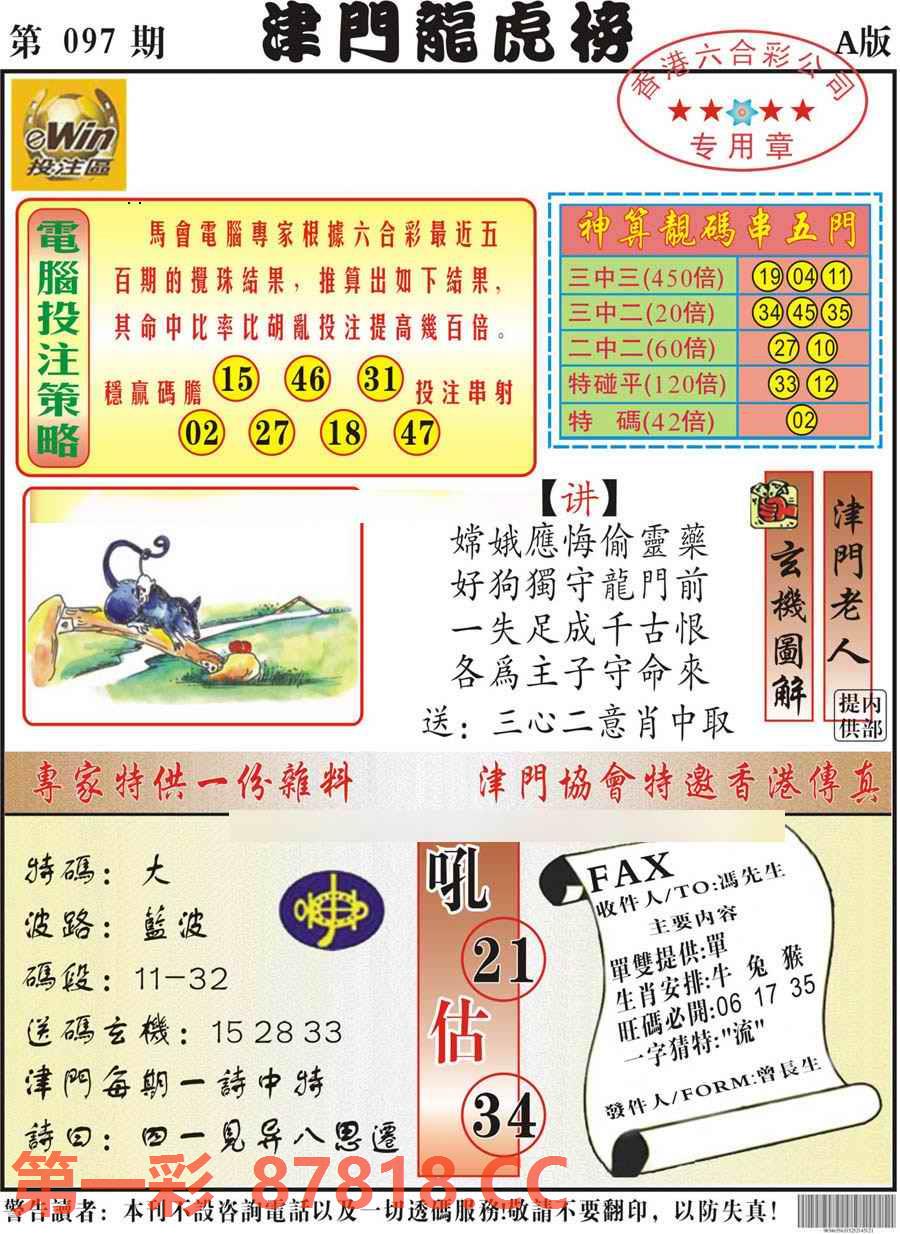 第 097 期
津門龍虎榜
A版
香港六合彩公司
专用章
eWin
投注區
電腦投注策略
馬會電腦專家根據六合彩最近五
百期的攪珠結果，推算出如下結果，
其命中比率比胡亂投注提高幾百倍。
穩贏碼膽 15 46 31 投注串射
02 27 18 47
神算靚碼串五門
三中三(450倍) 19 04 11
三中二(20倍) 34 45 35
二中二(60倍) 27 10
特碰平(120倍) 33 12
特 碼(42倍) 02
【讲】
嫦娥應悔偷靈藥
好狗獨守龍門前
一失足成千古恨
各爲主子守命來
送：三心二意肖中取
玄機圖解
津門老人
内部提供
專家特供一份雜料
津門協會特邀香港傳真
特碼：大
波路：藍波
碼段：11-32
送碼玄機：15 28 33
津門每期一詩中特
詩曰：四一見异八思遷
吼
21
估
34
FAX
收件人/TO:馮先生
主要内容
單雙提供:單
生肖安排:牛 兔 猴
旺碼必開:06 17 35
一字猜特:"流"
發件人/FORM:曾長生
第一彩 87818.CC
警告讀者：本刊不設咨詢電話以及一切透碼服務!敬請不要翻印，以防失真!